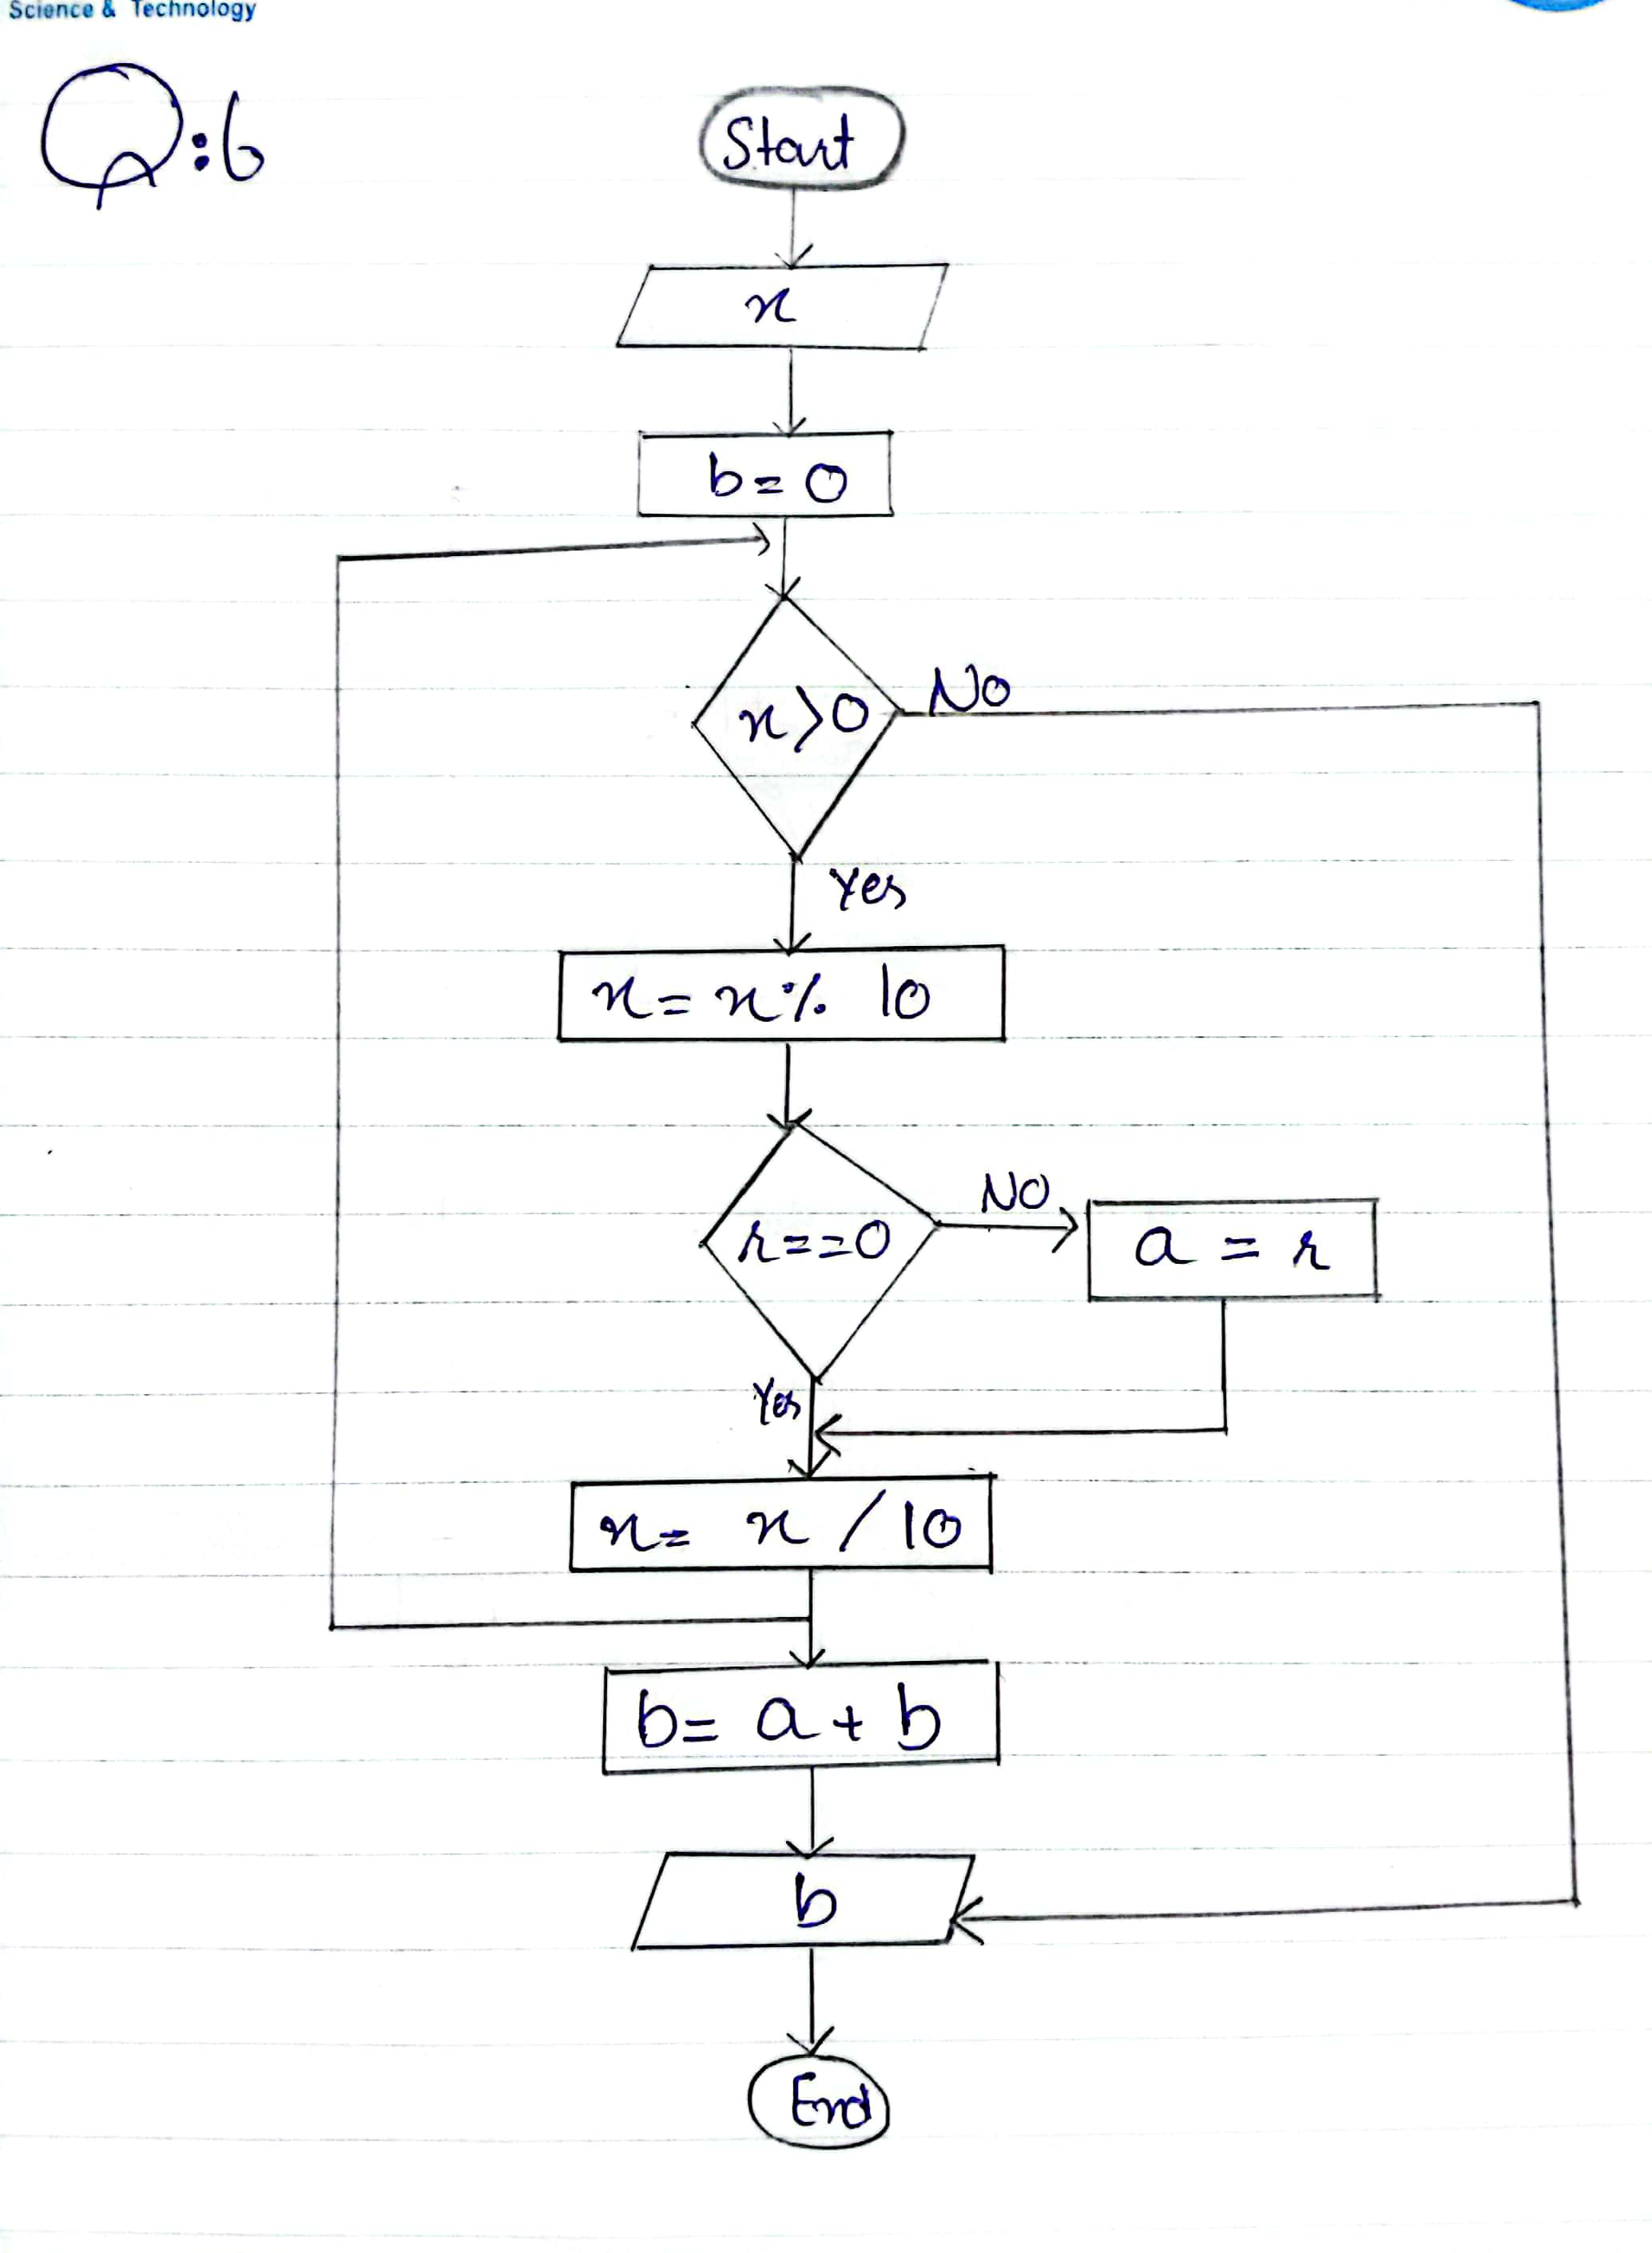 Science & Technology
Q:6
Start
x
b=0
x>0
No
Yes
x = x % 10
r==0
NO
a = r
Yes
x= x / 10
b= a + b
b
End